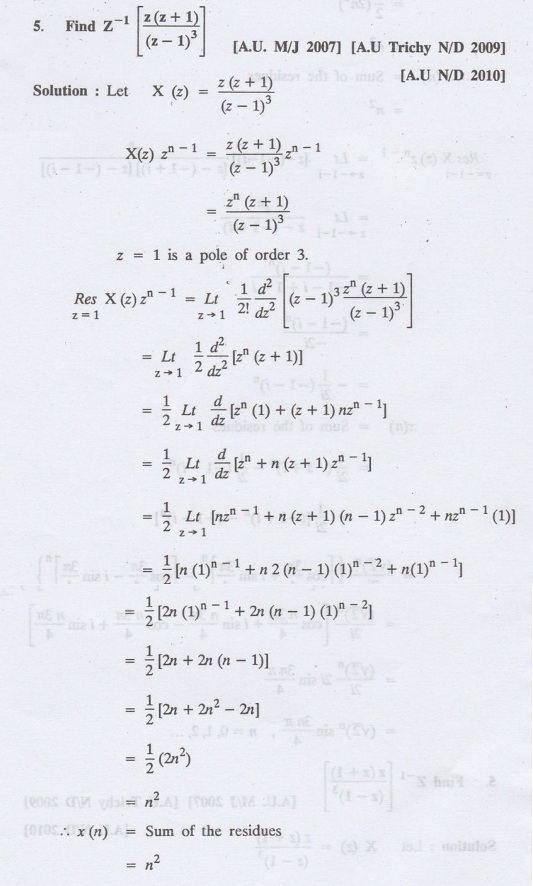 5. Find Z⁻¹ [z (z + 1) / (z − 1)³]
[A.U. M/J 2007] [A.U Trichy N/D 2009]
[A.U N/D 2010]
Solution : Let X (z) = z (z + 1) / (z − 1)³
X(z) zⁿ ⁻ ¹ = z (z + 1) / (z − 1)³ zⁿ ⁻ ¹
= zⁿ (z + 1) / (z − 1)³
z = 1 is a pole of order 3.
Res X (z) zⁿ ⁻ ¹ = Lt 1/2! d²/dz² [(z − 1)³ zⁿ (z + 1) / (z − 1)³]
z = 1 z → 1
= Lt 1/2 d²/dz² [zⁿ (z + 1)]
z → 1
= 1/2 Lt d/dz [zⁿ (1) + (z + 1) nzⁿ ⁻ ¹]
z → 1
= 1/2 Lt d/dz [zⁿ + n (z + 1) zⁿ ⁻ ¹]
z → 1
= 1/2 Lt [nzⁿ ⁻ ¹ + n (z + 1) (n − 1) zⁿ ⁻ ² + nzⁿ ⁻ ¹ (1)]
z → 1
= 1/2 [n (1)ⁿ ⁻ ¹ + n 2 (n − 1) (1)ⁿ ⁻ ² + n(1)ⁿ ⁻ ¹]
= 1/2 [2n (1)ⁿ ⁻ ¹ + 2n (n − 1) (1)ⁿ ⁻ ²]
= 1/2 [2n + 2n (n − 1)]
= 1/2 [2n + 2n² − 2n]
= 1/2 (2n²)
= n²
∴ x (n) = Sum of the residues
= n²